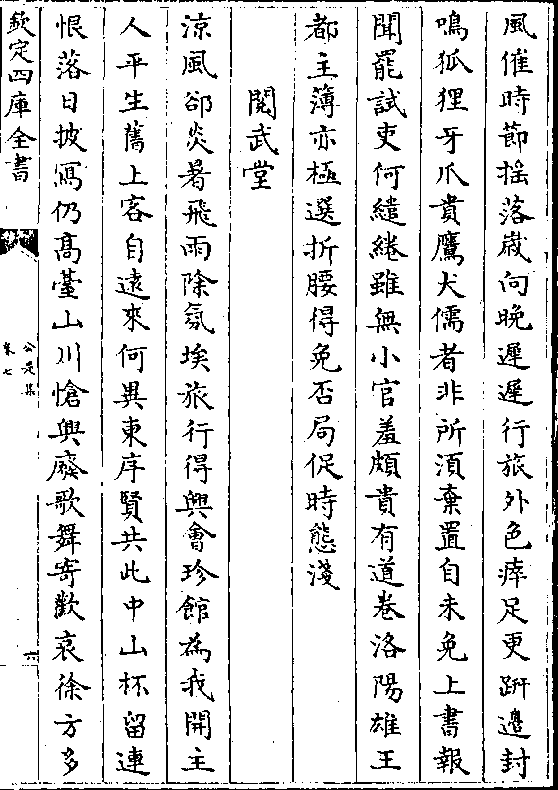 風催時節揺落嵗向晚遲遲行旅外色瘁足更趼邉封
鳴狐狸牙爪貴鷹犬儒者非所湏棄置自未免上書報
聞罷試吏何繾綣雖無小官羞頗貴有道卷洛陽雄王
都主簿亦極選折腰得免否局促時態淺
閱武堂
涼風卻炎暑飛雨除氛埃旅行得興會珍館為我開主
人平生舊上客自逺來何異東序賢共此中山杯留連
恨落日披寫仍髙臺山川愴興廢歌舞寄歡哀徐方多
欽定四庫全書
公是集
卷七
六